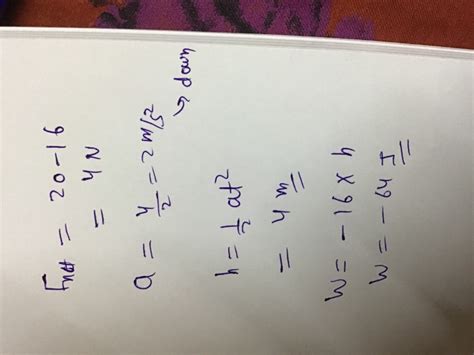 Fnet = 20-16
= 4N
a = 4/2 = 2 m/s²
↘ down
h = 1/2 at²
= 4 m
W = -16 × h
W = -64 J